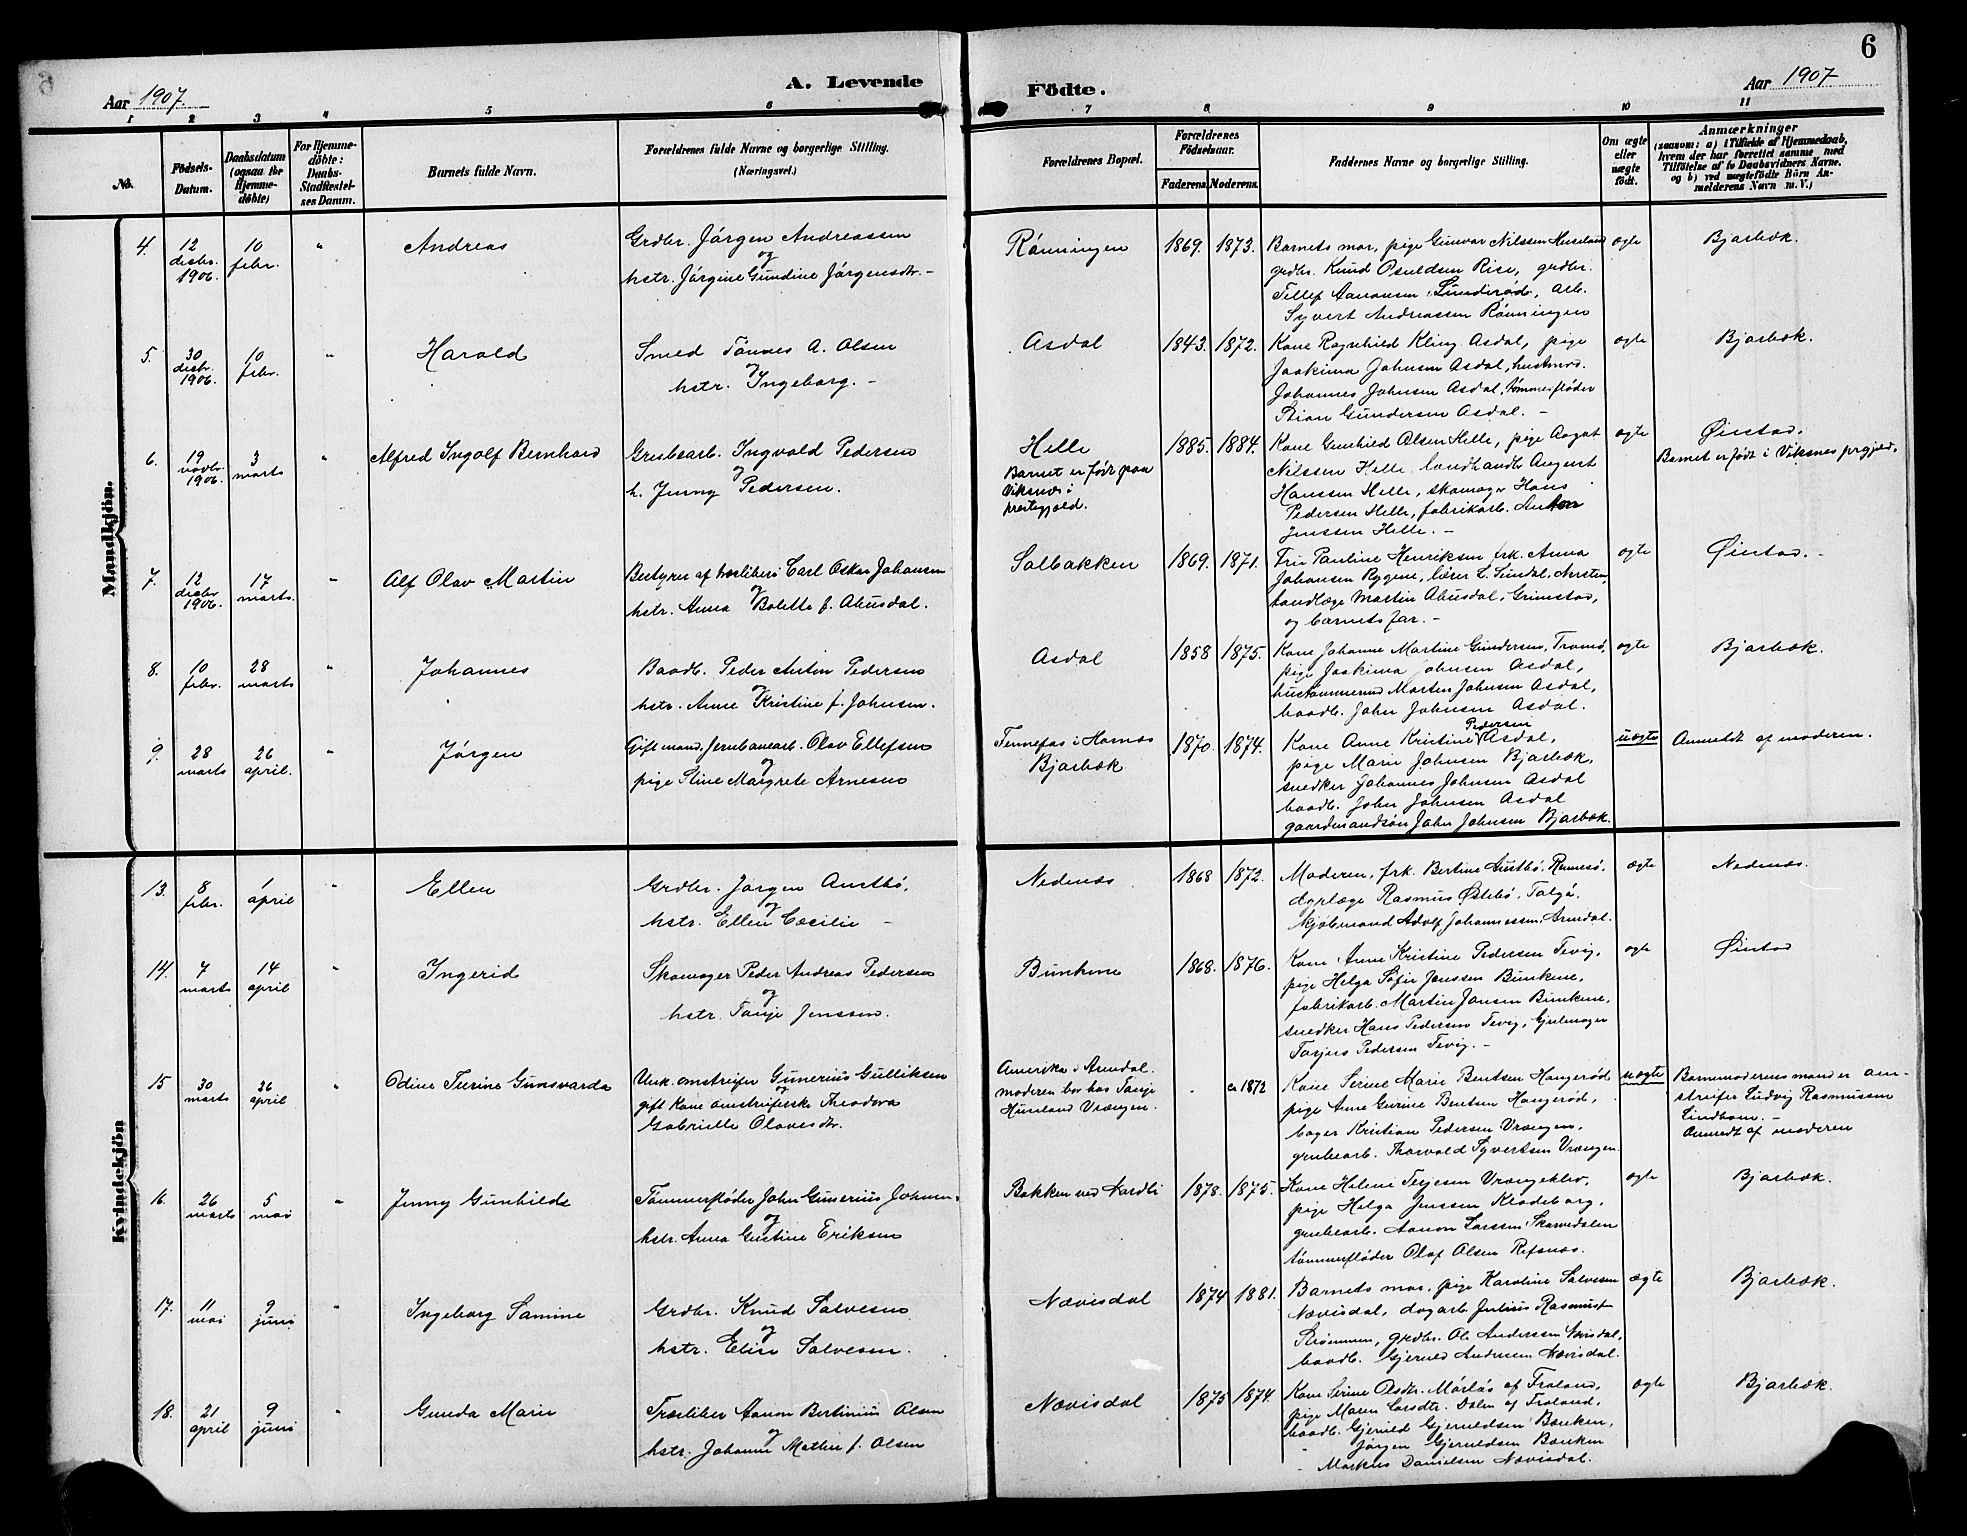 6
Aar 1907.
A. Levende
Födte.
Aar 1907
1 2 3 4 5 6 7 8 9 10 11
No.
Födsels-Datum.
Daabsdatum (ogsaa for Hjemme-döbte)
For Hjemme-döbte: Daabs-Stadfæstel-ses Datum.
Barnets fulde Navn.
Forældrenes fulde Navne og borgerlige Stilling.
(Næringsvei.)
Forældrenes Bopæl.
Forældrenes Födselsaar.
Faderens Moderens.
Faddernes Navne og borgerlige Stilling.
Om ægte eller uægte födt.
Anmærkninger
(saasom: a) i Tilfælde af Hjemmedaab, hvem der har forrettet samme med Tilföielse af to Daabsvidners Navne. og b) ved uægtefödte Börn An-melderens Navn m. V.)
Mandkjön.
4. 12 desbr. 1906. 10 febr. " Andreas
Grdbr. Jørgen Andreassen
og
hstr. Jørgine Gundine Jørgensdtr. -
Rønningen 1869. 1873.
Barnets mor, pige Gunvor Nilssen Huseland
grdbr. Knud Osuldsen Rise, grdbr.
Tellef Aanonsen Lunderød, arb.
Syvert Andreassen Rønningen
ægte Bjorbæk.
5. 30 desbr. 1906. 10 febr. " Harald
Smed Tønnes A. Olsen
og
hstr. Ingeborg. -
Asdal 1843. 1872.
Kone Ragnhild Kling Asdal, pige
Joakima Johnsen Asdal, hustmrs.
Johannes Johnsen Asdal, tømmerfløder
Stian Gundersen Asdal. -
ægte Bjorbæk.
6. 19 novbr. 1906. 3 marts " Alfred Ingolf Bernhard
Grubearb. Ingvald Pedersen
og
h. Jenny Pedersen.
Helle
Barnet er født paa
Viksnes i
prestegjeld.
1885. 1884.
Kone Gunhild Olsen Helle, pige Aagot
Nilssen Helle, landhandl. August
Hanssen Helle, skomager Hans
Pedersen Helle, fabrikarb. Anton
Jenssen Helle. -
ægte Øiestad.
Barnet er født i Viksnes prgjeld.
7. 12 desbr. 1906. 17 marts. " Alf Olav Martin
Bestyrer af træsliberi Carl Oskar Johansen
og
hstr. Anna Bolette f. Abusdal.
Solbakken 1869. 1871.
Fru Pauline Henriksen, frk. Anna
Johansen Rygene, lærer L. Sundal, Nersten,
tandlæge Martin Abusdal, Grimstad,
og barnets far. -
ægte Øiestad. -
8. 10 febr. 28 marts " Johannes
Baadb. Peder Anton Pedersen
og
hstr. Anne Kristine f. Johnsen.
Asdal 1858 1875.
Kone Johanne Martine Gundersen, Tromø,
pige Joakima Johnsen Asdal,
hustømmermd Morten Johnsen Asdal,
baadb. John Johnsen Asdal.
ægte Bjorbæk.
9. 28 marts 26 april. Jørgen
Gift mand, jernbanearb. Olav Ellefsen
og
pige Stine Margrete Arnesen
Tennefos i Hornes
Bjorbæk
1870. 1874.
Kone Anne Kristine Pedersen Asdal,
pige Marie Johnsen Bjorbæk,
snedker Johannes Johnsen Asdal
baadb. John Johnsen Asdal
gaardmandsøn John Johnsen Bjorbæk.
uægte Anmeldt af moderen.
Kvindekjön
13. 8 febr. 1 april " Ellen
Grdbr. Jørgen Austbø,
og
hstr. Ellen Cæcilie -
Nedenæs 1868 1872.
Moderen, frk. Bertine Austbø, Rennesø,
dyrlæge Rasmus Østebø, Talgø,
kjøbmand Adolf Johannessen, Arendal.
ægte Nedenæs.
14. 7 marts 14 april " Ingerid
Skomager Peder Andreas Pedersen
og
hstr. Tonje Jenssen.
Bunkene 1868. 1876.
Kone Anne Kristine Pedersen Fevig,
pige Helga Sofie Jenssen Bunkene,
fabrikarb. Martin Jensen Bunkene,
snedker Hans Pedersen Fevig, Gjulmager
Torjus Pedersen Fevig. -
ægte Øiestad
15 30 marts 26 april " Odine Turine Gunsvarda
Unk. omstreifer Gunerius Gulliksen
og
gift kone omstreiferske Theodora
Gabrielle Olavesdtr.
Amerika i Arendal.
moderen bor hos Tonje
Huseland Vrængen.
- ca 1872
Kone Serine Marie Bentsen Haugerød
pige Anne Gurine Bentsen Haugerød,
bager Kristian Pedersen Vrængen,
grubearb. Thorvald Syvertsen Vrængen
uægte
Barnemoderens mand er om-
streifer Ludvig Rasmussen
Lindhom. -
Anmeldt af moderen
16. 26 marts 5 mai " Jenny Gunhilde
Tømmerfløder John Gunerius Johnsen,
og
hstr. Anna Gustine Eriksen
Bakken ved Nordli 1878. 1875.
Kone Helene Terjesen Vrængeklev,
pige Helga Jenssen Klodeborg,
grubearb. Aanon Larssen Skarvedalen
tømmerfløder Olaf Olsen Refsnæs.
ægte Bjorbæk.
17. 11 mai 9 juni " Ingeborg Samine
Grdbr. Knud Salvesen
og
hstr. Elise Salvesen.
Nævisdal 1874 1881.
Barnets mor, pige Karoline Salvesen
Nævisdal, dagarb. Julius Rasmussen
Strømmen, grdbr. Ole Anderssen Nævisdal,
baadb. Gjeruld Andersen Nævisdal.
ægte Bjorbæk.
18. 21 april 9 juni " Gunda Marie
Træsliber Aanon Bertinius Olsen
og
hstr. Johanne Mathie f. Olsen
Nævisdal 1875 1874.
Kone Serine Olsdtr. Mørfjær af Froland,
pige Maren Larsdtr. Dalen af Froland,
baadb. Gjeruld Gjeruldsen Bænken,
" Jørgen Gjeruldsen Bænken
- Markus Danielsen Nævisdal.
ægte Bjorbæk.